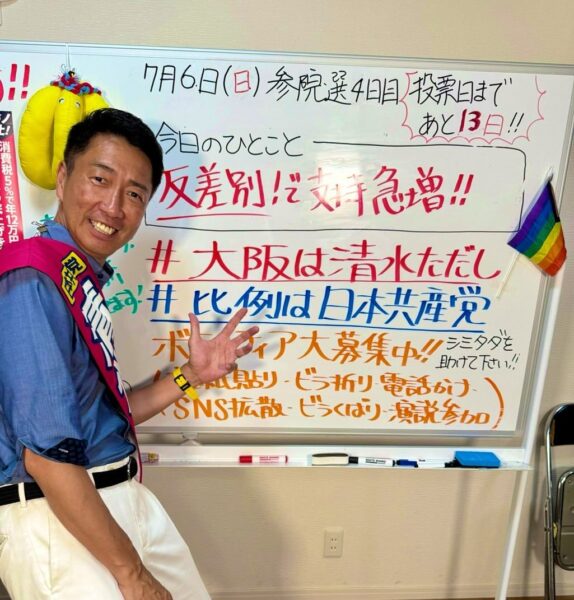 7月6日(日)参院選4日目
投票日まで
あと13日!!
今日のひとこと
反差別!で支持急増!!
# 大阪は清水ただし
# 比例は日本共産党
ボ ティア大募集中!!
シミタダを
助けて下さい!!
貼り・ビラ折り・電話かけ・
SNS拡散・ビラくばり・演説参加
!!
消費税5%で年12万円